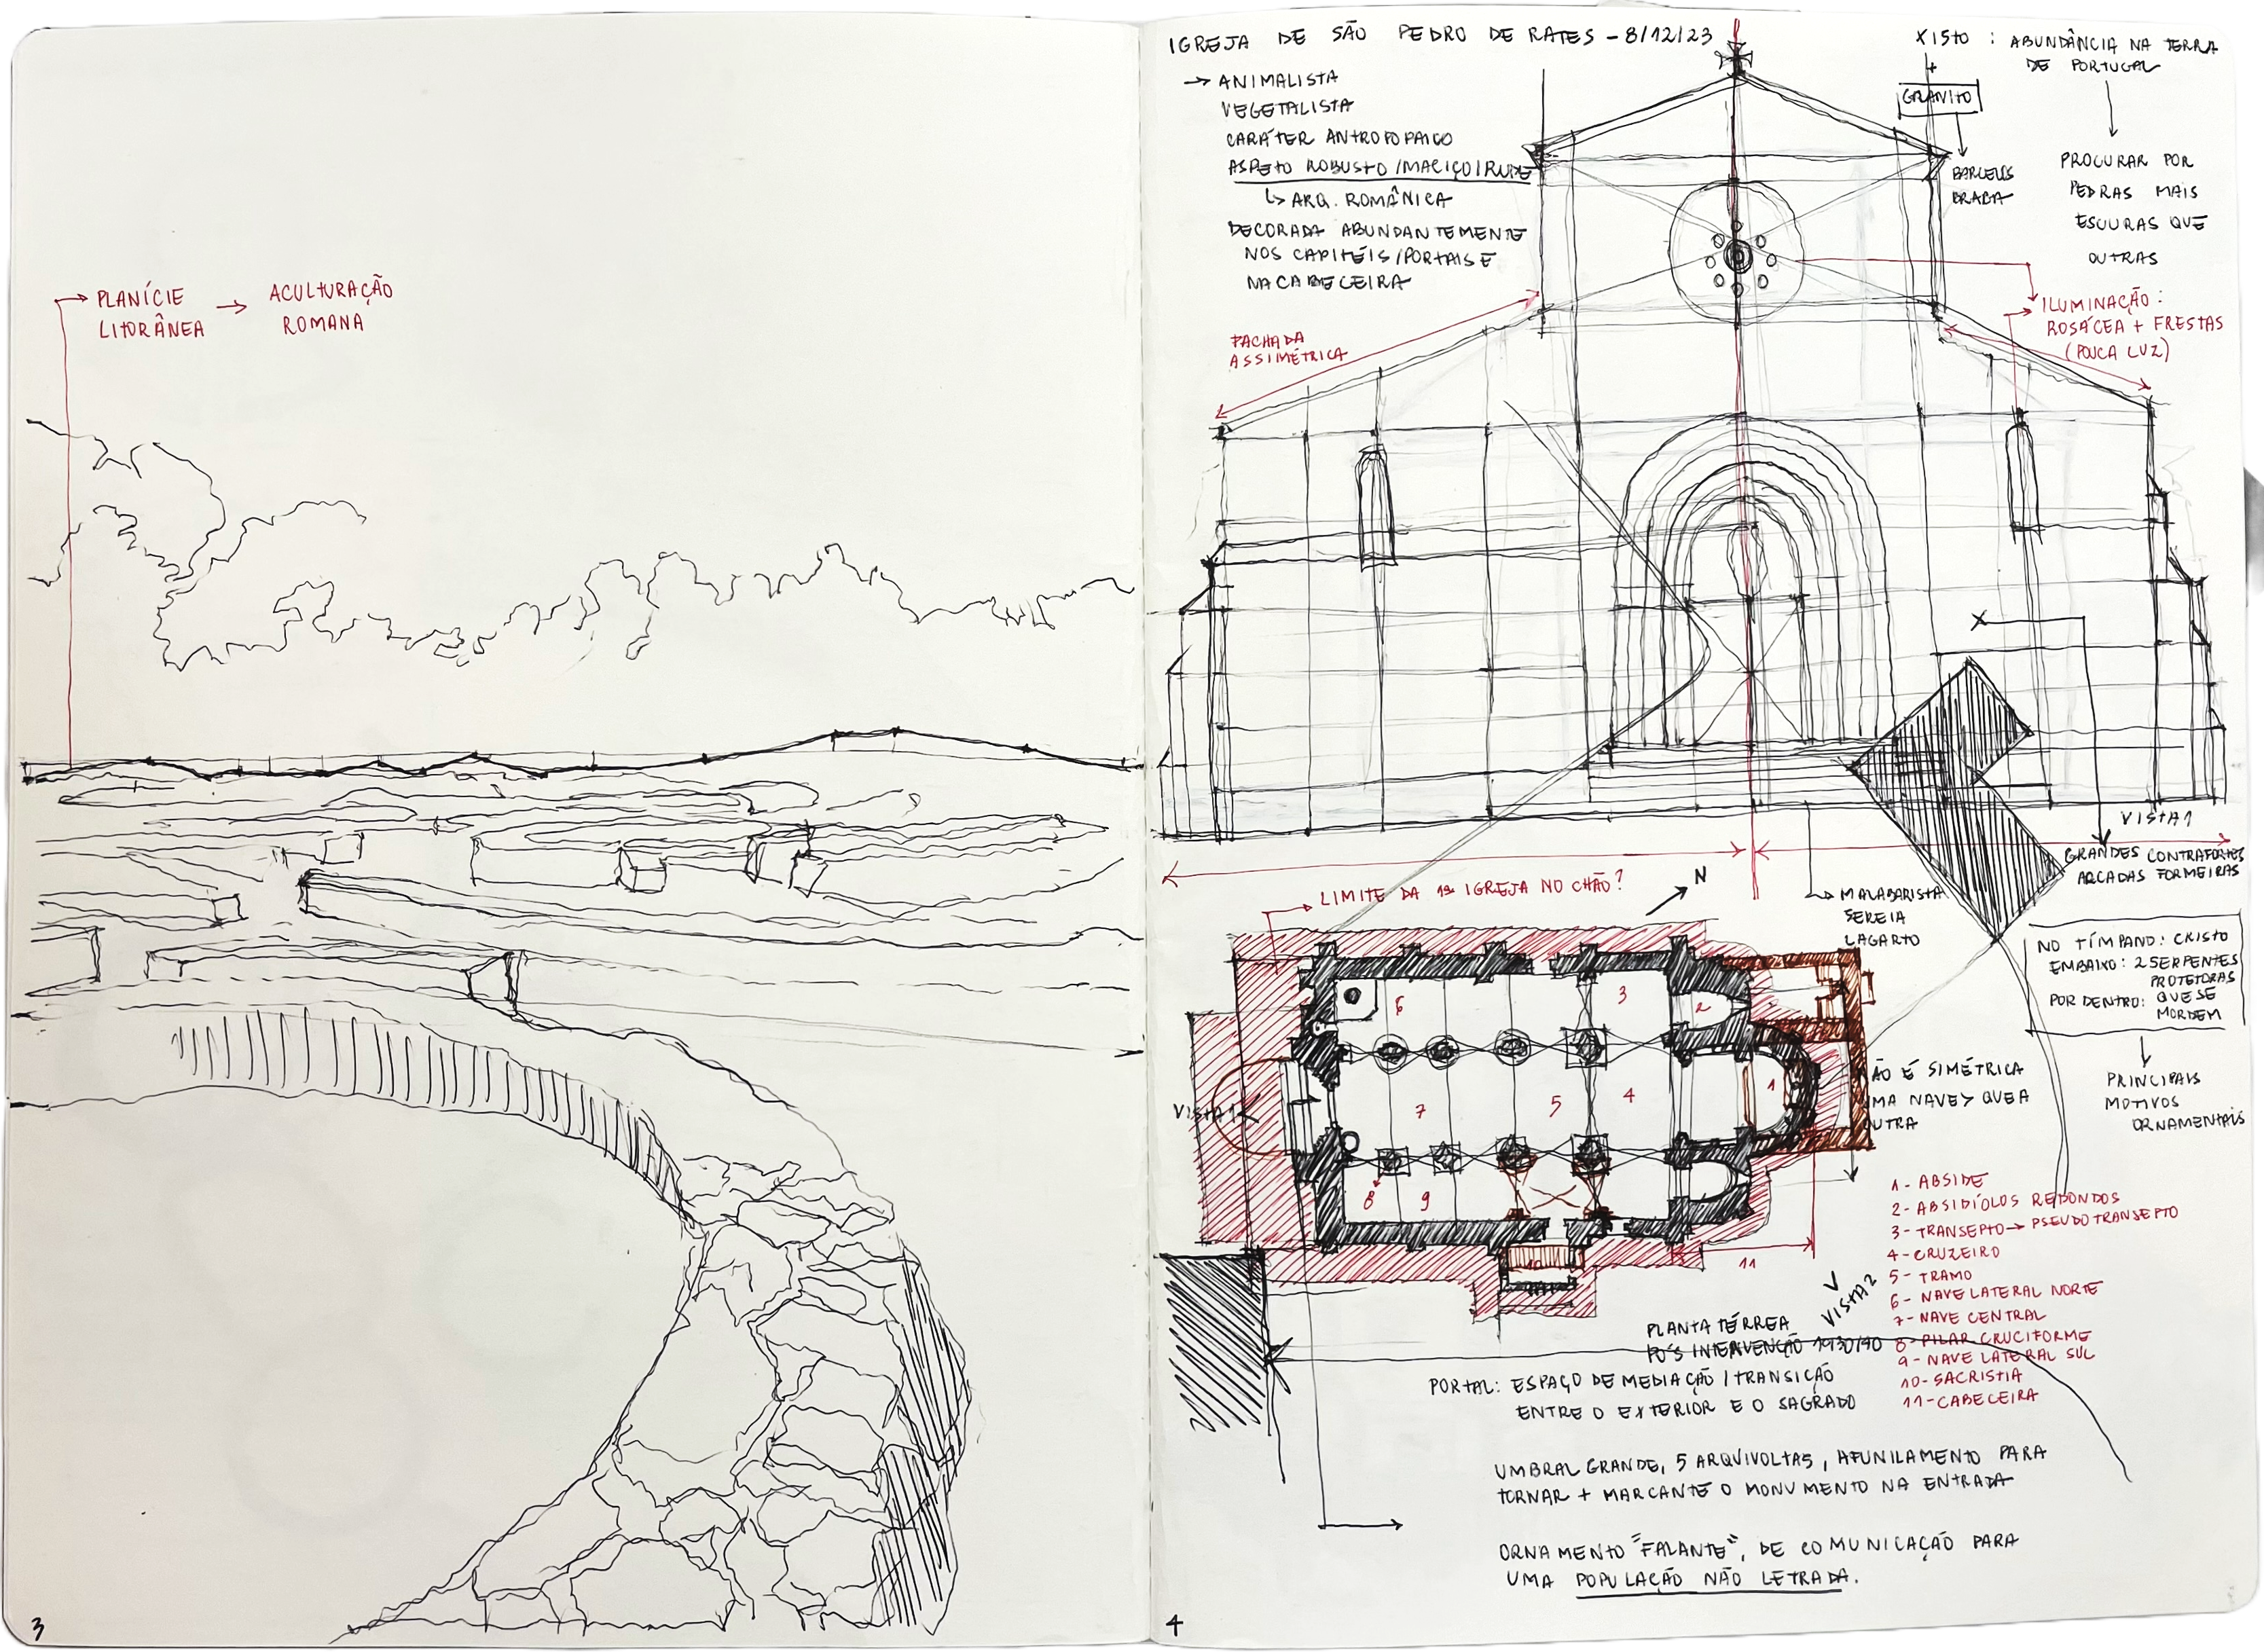 PLANÍCIE → ACULTURAÇÃO
LITORÂNEA ROMANA
3
IGREJA DE SÃO PEDRO DE RATES - 8/12/23
→ ANIMALISTA
VEGETALISTA
CARÁTER ANTROFOPAICO
ASPETO ROBUSTO/MACIÇO/RUDE
↳ ARQ. ROMÂNICA
DECORADA ABUNDANTEMENTE
NOS CAPITÉIS/PORTAIS E
NA CABECEIRA
FACHADA
ASSIMÉTRICA
XISTO : ABUNDÂNCIA NA TERRA
DE PORTUGAL
+
GRANITO
BARCELOS
BRAGA
PROCURAR POR
PEDRAS MAIS
ESCURAS QUE
OUTRAS
ILUMINAÇÃO :
ROSÁCEA + FRESTAS
(POUCA LUZ)
VISTA 1
GRANDES CONTRAFORTES
ARCADAS FORMEIRAS
LIMITE DA 1ª IGREJA NO CHÃO?
N
MALABARISTA
SEREIA
LAGARTO
NO TÍMPANO: CRISTO
EMBAIXO: 2 SERPENTES
PROTETORAS
POR DENTRO: QUE SE
MORDEM
PRINCIPAIS
MOTIVOS
ORNAMENTAIS
6
3
2
1
7
5
4
8
9
10
11
VISTA 1
ÃO É SIMÉTRICA
MA NAVE > QUE A
UTRA
1 - ABSIDE
2 - ABSIDÍOLOS REDONDOS
3 - TRANSEPTO → PSEUDO TRANSEPTO
4 - CRUZEIRO
5 - TRAMO
6 - NAVE LATERAL NORTE
7 - NAVE CENTRAL
8 - PILAR CRUCIFORME
9 - NAVE LATERAL SUL
10 - SACRISTIA
11 - CABECEIRA
VISTA 2
PLANTA TÉRREA
PÓS INTERVENÇÃO 1930/40
PORTAL: ESPAÇO DE MEDIAÇÃO / TRANSIÇÃO
ENTRE O EXTERIOR E O SAGRADO
UMBRAL GRANDE, 5 ARQUIVOLTAS, AFUNILAMENTO PARA
TORNAR + MARCANTE O MONUMENTO NA ENTRADA
ORNAMENTO "FALANTE", DE COMUNICAÇÃO PARA
UMA POPULAÇÃO NÃO LETRADA.
4